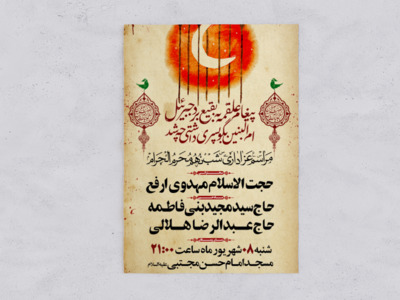 پیغام علقمه به بقیع برد جبرئیل
ام البنین بگو پسری داشتی چه شد
مراسم عزاداری شب دهم محرم الحرام
حجت الاسلام مهدوی ارفع
حاج سید مجید بنی فاطمه
حاج عبدالرضا هلالی
شنبه ۰۸ شهریور ماه ساعت ۲۱:۰۰
مسجد امام حسن مجتبی علیه السلام